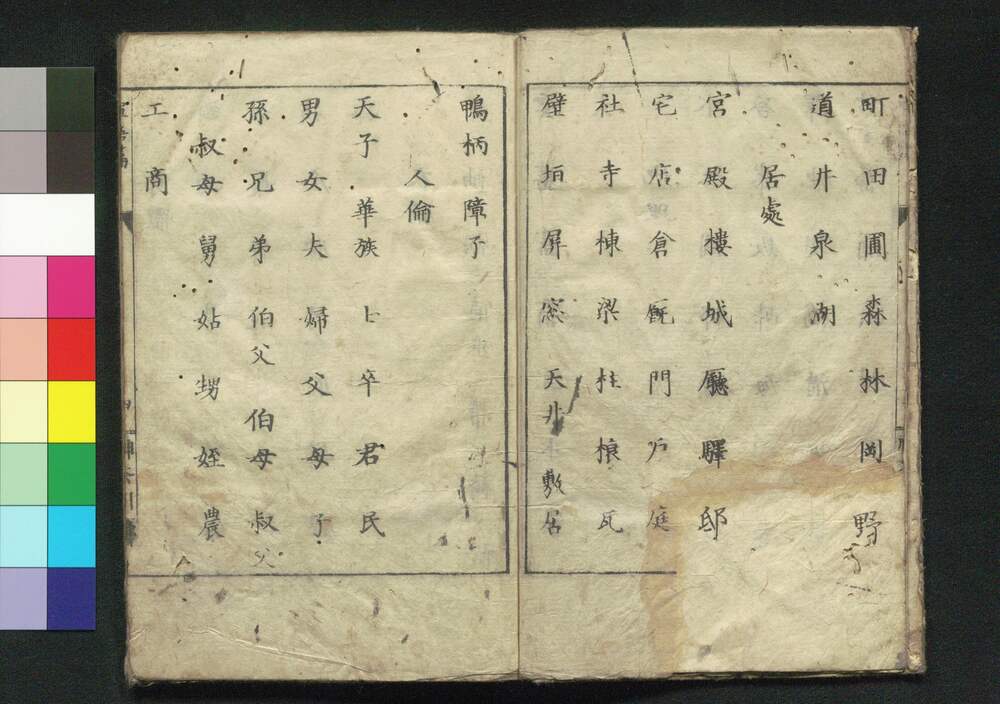 町田圃森林岡野
道井泉湖
居處
宮殿樓城廳驛邸
宅店倉厩門戸庭
社寺棟梁柱榱瓦
壁垣屏窓天井敷居
鴨柄障子
人倫
天子華族士卒君民
男女夫婦父母子
孫兄弟伯父伯母叔父
叔母舅姑甥姪農
工商